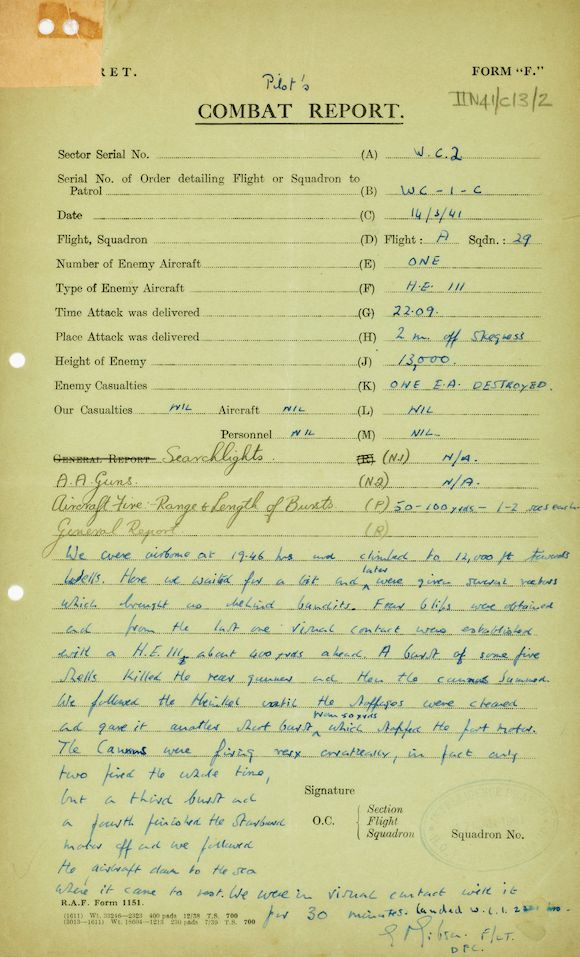 RET.
FORM "F."
Pilot's
IIN41/C13/2
COMBAT REPORT.
Sector Serial No. (A) W.C.2
Serial No. of Order detailing Flight or Squadron to
Patrol (B) WC-1-C
Date (C) 14/3/41
Flight, Squadron (D) Flight: A Sqdn.: 29
Number of Enemy Aircraft (E) ONE
Type of Enemy Aircraft (F) H.E. III
Time Attack was delivered (G) 22.09.
Place Attack was delivered (H) 2 m. off Skegness
Height of Enemy (J) 13,000.
Enemy Casualties (K) ONE E.A. DESTROYED.
Our Casualties NIL Aircraft NIL (L) NIL
Personnel NIL (M) NIL
GENERAL REPORT Searchlights. (R) (N.1) N/A.
A.A Guns. (N2) N/A.
Aircraft Fire:- Range & Length of Bursts (P) 50-100 yrds - 1-2 secs each
General Report (R)
We were airborne at 19.46 hrs and climbed to 12,000 ft towards
Wells. Here we waited for a bit and later were given several vectors
which brought us behind bandits. Four blips were obtained
and from the last one visual contact were established
with a H.E. III, about 400 yrds ahead. A burst of some five
shells killed the rear gunner and then the cannons jammed.
We followed the Heinkel until the stoppages were cleared
and gave it another short burst from 50 yrds which stopped the port motor.
The Cannons were firing very erratically, in fact only
two fired the whole time,
but a third burst and
a fourth finished the starboard
motor off and we followed
the aircraft down to the sea
where it came to rest. We were in visual contact with it
for 30 minutes. landed W.C.1
Signature
O.C. { Section
Flight
Squadron
Squadron No.
R.A.F. Form 1151.
(1611) Wt. 33246—2323 400 pads 12/38 T.S. 700
(3013—1611) Wt. 18604—1213 230 pads 7/39 T.S. 700
G Gibson F/LT.
DFC.